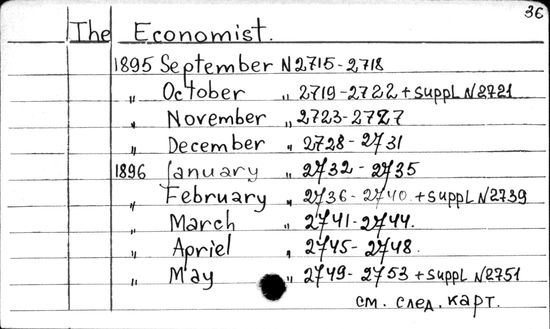 36
The Economist.
1895 September N 2715-2718
„ October „ 2719-2722 + suppl N2721
„ November „ 2723-2727
„ December „ 2728-2731
1896 January „ 2732-2735
„ February „ 2736-2740. + suppl N2739
„ March „ 2741-2744.
„ Apriel „ 2745-2748.
„ May „ 2749-2753 + suppl N2751
см. след. карт.